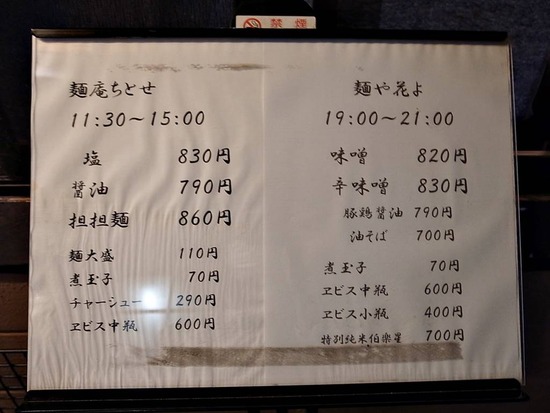 禁煙
麺庵ちとせ
11:30～15:00
塩 830円
醤油 790円
担担麺 860円
麺大盛 110円
煮玉子 70円
チャーシュー 290円
ヱビス中瓶 600円
麺や花よ
19:00～21:00
味噌 820円
辛味噌 830円
豚鶏醤油 790円
油そば 700円
煮玉子 70円
ヱビス中瓶 600円
ヱビス小瓶 400円
特別純米伯楽星 700円